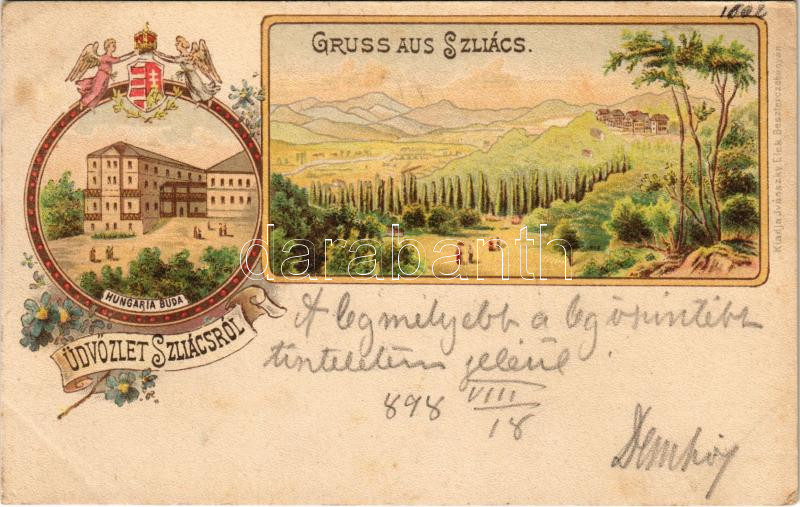 1892
GRUSS AUS SZLIÁCS.
Kiadja Ivánszky Elek Beszterczebányán
HUNGARIA BUDA
ÜDVÖZLET SZLIÁCSRÓL
darabanth
A legmélyebb a legőszintébb
tiszteletem jeléül
898 VIII/18